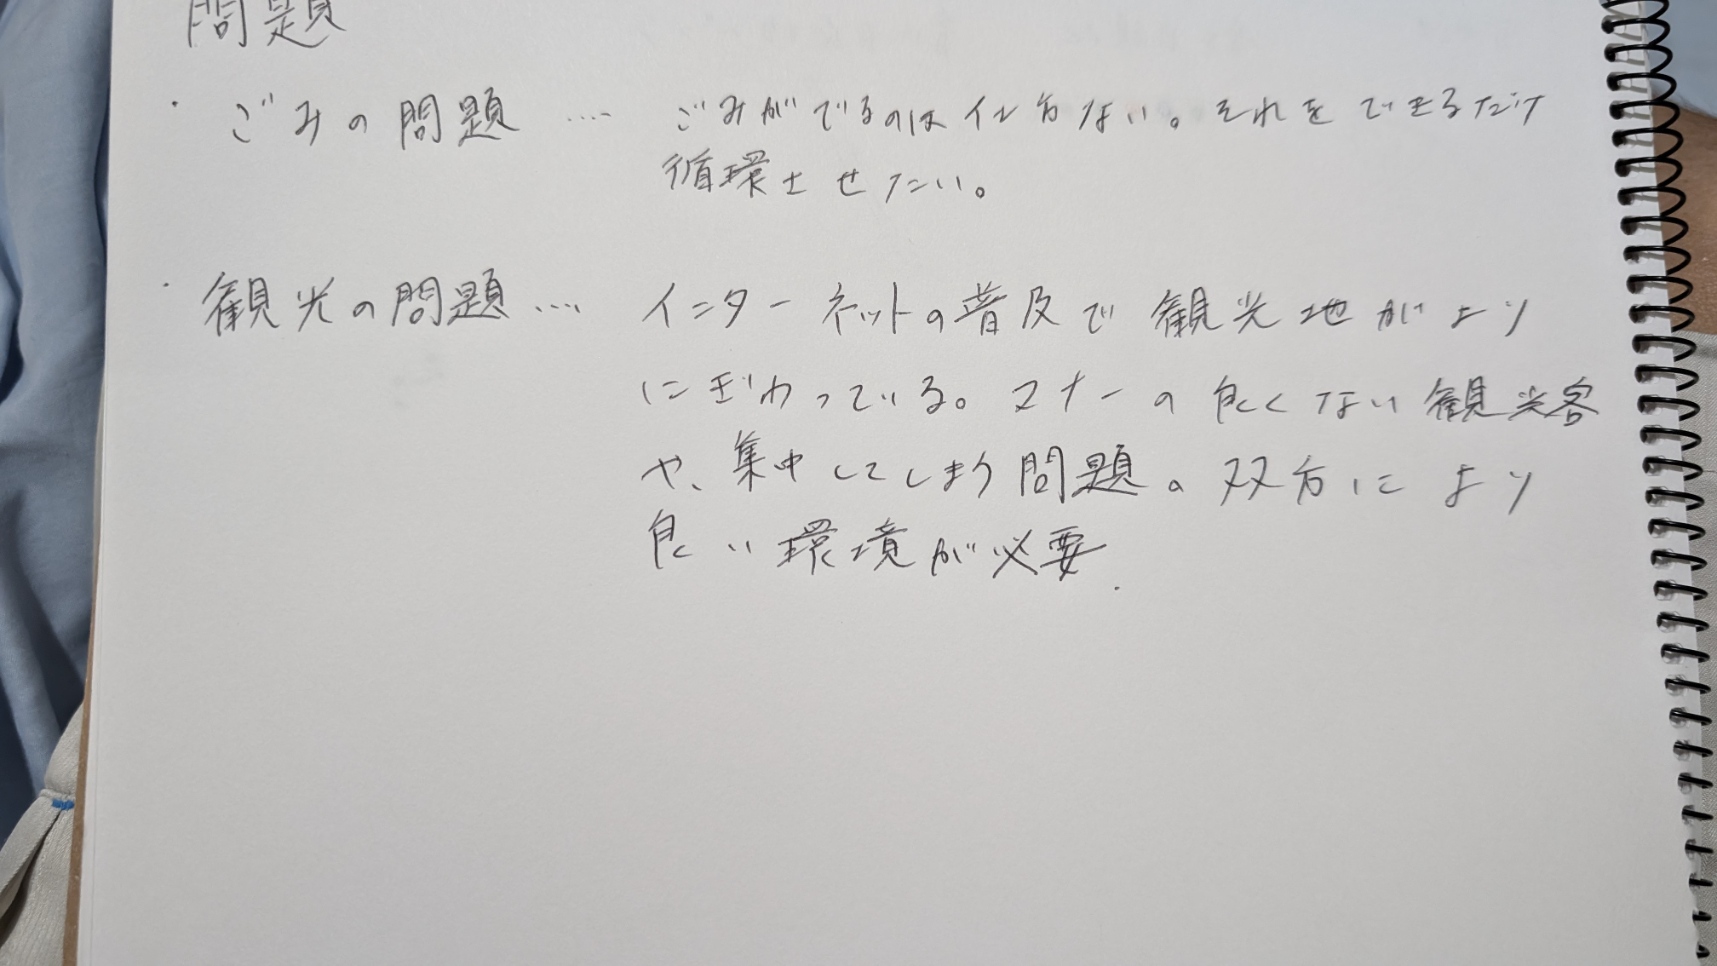 問題
・ごみの問題 …. ごみがでるのは仕方ない。それをできるだけ
循環させたい。
・観光の問題 …. インターネットの普及で観光地がより
にぎわっている。マナーの良くない観光客
や、集中してしまう問題の双方により
良い環境が必要.